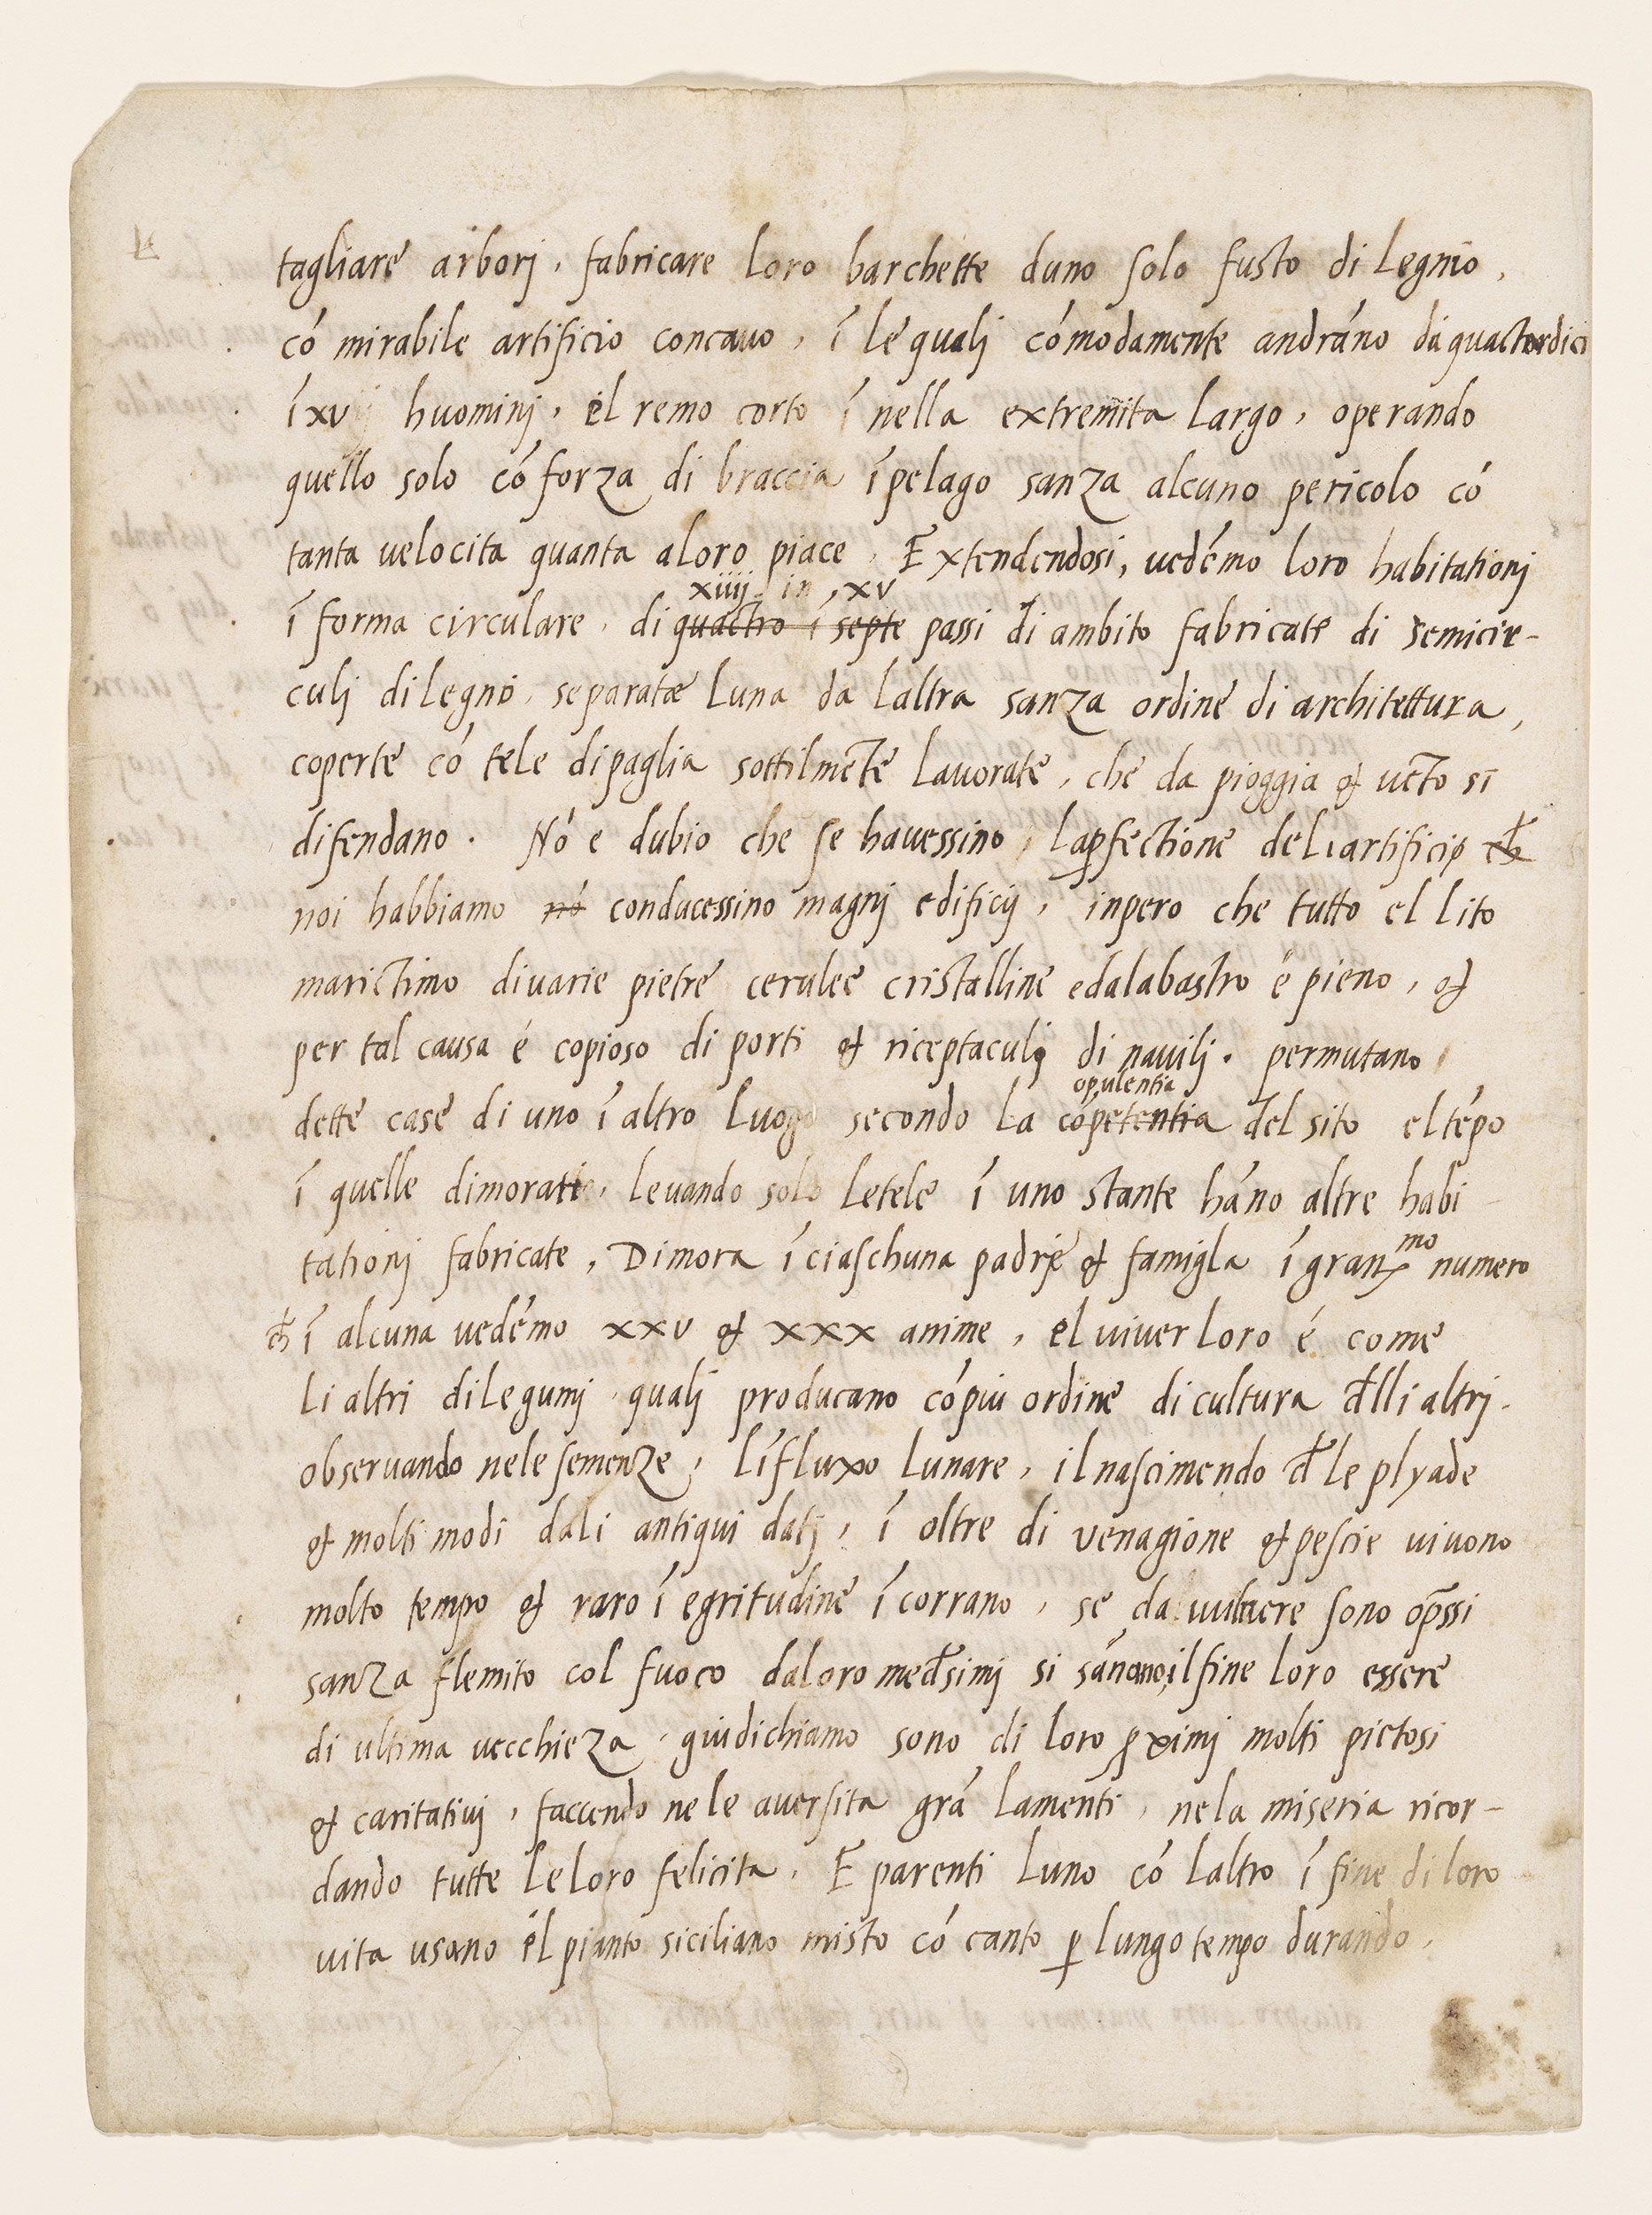 tagliare arborj, fabricare loro barchette duno solo fusto di legnio,
có mirabile artificio concavo, ī le qualj cómodamente andráno da quactordici
ī xv huominj, el remo corto ī nella extremita largo, operando
quello solo có forza di braccia ī pelago sanza alcuno pericolo có
tanta velocita quanta aloro piace. Extendendosi, vedémo loro habitationj
xiiij in xv
ī forma circulare, di quactro ī septe passi di ambito fabricate di semicir-
culj di legno, separatæ luna da laltra sanza ordine di architettura,
coperte có tele di paglia sottilmēte lavorate, che da pioggia & vēto si
difendano. Nó e dubio che se havessino, la ꝑfectione deli artificij cħ
noi habbiamo nó conducessino magnj edificij, inpero che tutto el lito
marictimo di varie pietre cerulee cristalline e dalabastro é pieno, &
per tal causa é copioso di porti & riceptaculj di navilj. permutano
opulentia
dette case di uno ī altro luogo secondo la cópetentia del sito el tépo
ī quelle dimorati, levando solo le tele ī uno stante háno altre habi-
tationj fabricate, Dimora ī ciaschuna padre & famigla ī gran.mo numero
cħ ī alcuna vedémo xxv & xxx anime, el viver loro é come
li altri di legumj qualj producano có piu ordine di cultura đlli altrj.
observando nele semenze, līfluxo lunare, il nascimendo đ le plyade
& molti modi dali antiqui datj, ī oltre di venagione & pescie vivono
molto tempo & raro ī egritudine ī corrano, se da vulnere sono op̄ssi
sanza flemito col fuoco daloro međsimj si sánono, il fine loro essere
di ultima vecchieza, giudichiamo sono di loro ꝓximj molti pietosi
& caritativj, faccendo nele aversita grā lamenti, nela miseria ricor-
dando tutte le loro felicita. E parenti luno có laltro ī fine di loro
vita usano el pianto siciliano misto có canto ꝑ lungo tempo durando,